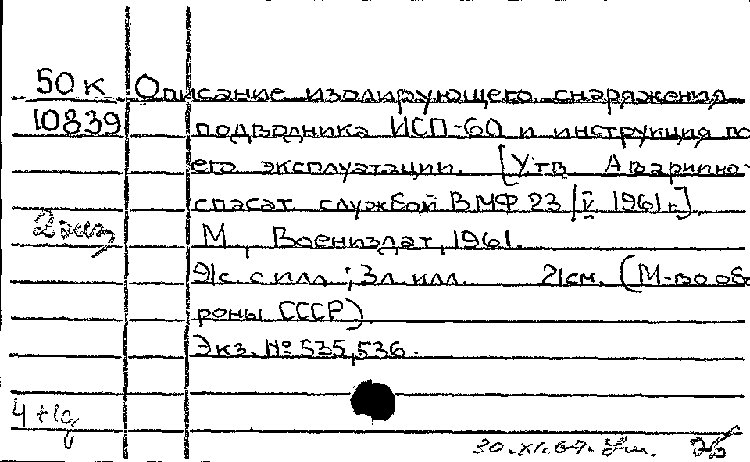 50 к Описание изолирующего снаряжения
10839 подводника ИСП-60 и инструкция по
его эксплуатации. [Утв Аварийно-
спасат службой ВМФ 23/V 1961 г.].
2 экз
М., Воениздат, 1961.
91 с. с илл.; 3 л. илл. 21 см. (М-во обо
роны СССР)
Экз. № 535, 536.